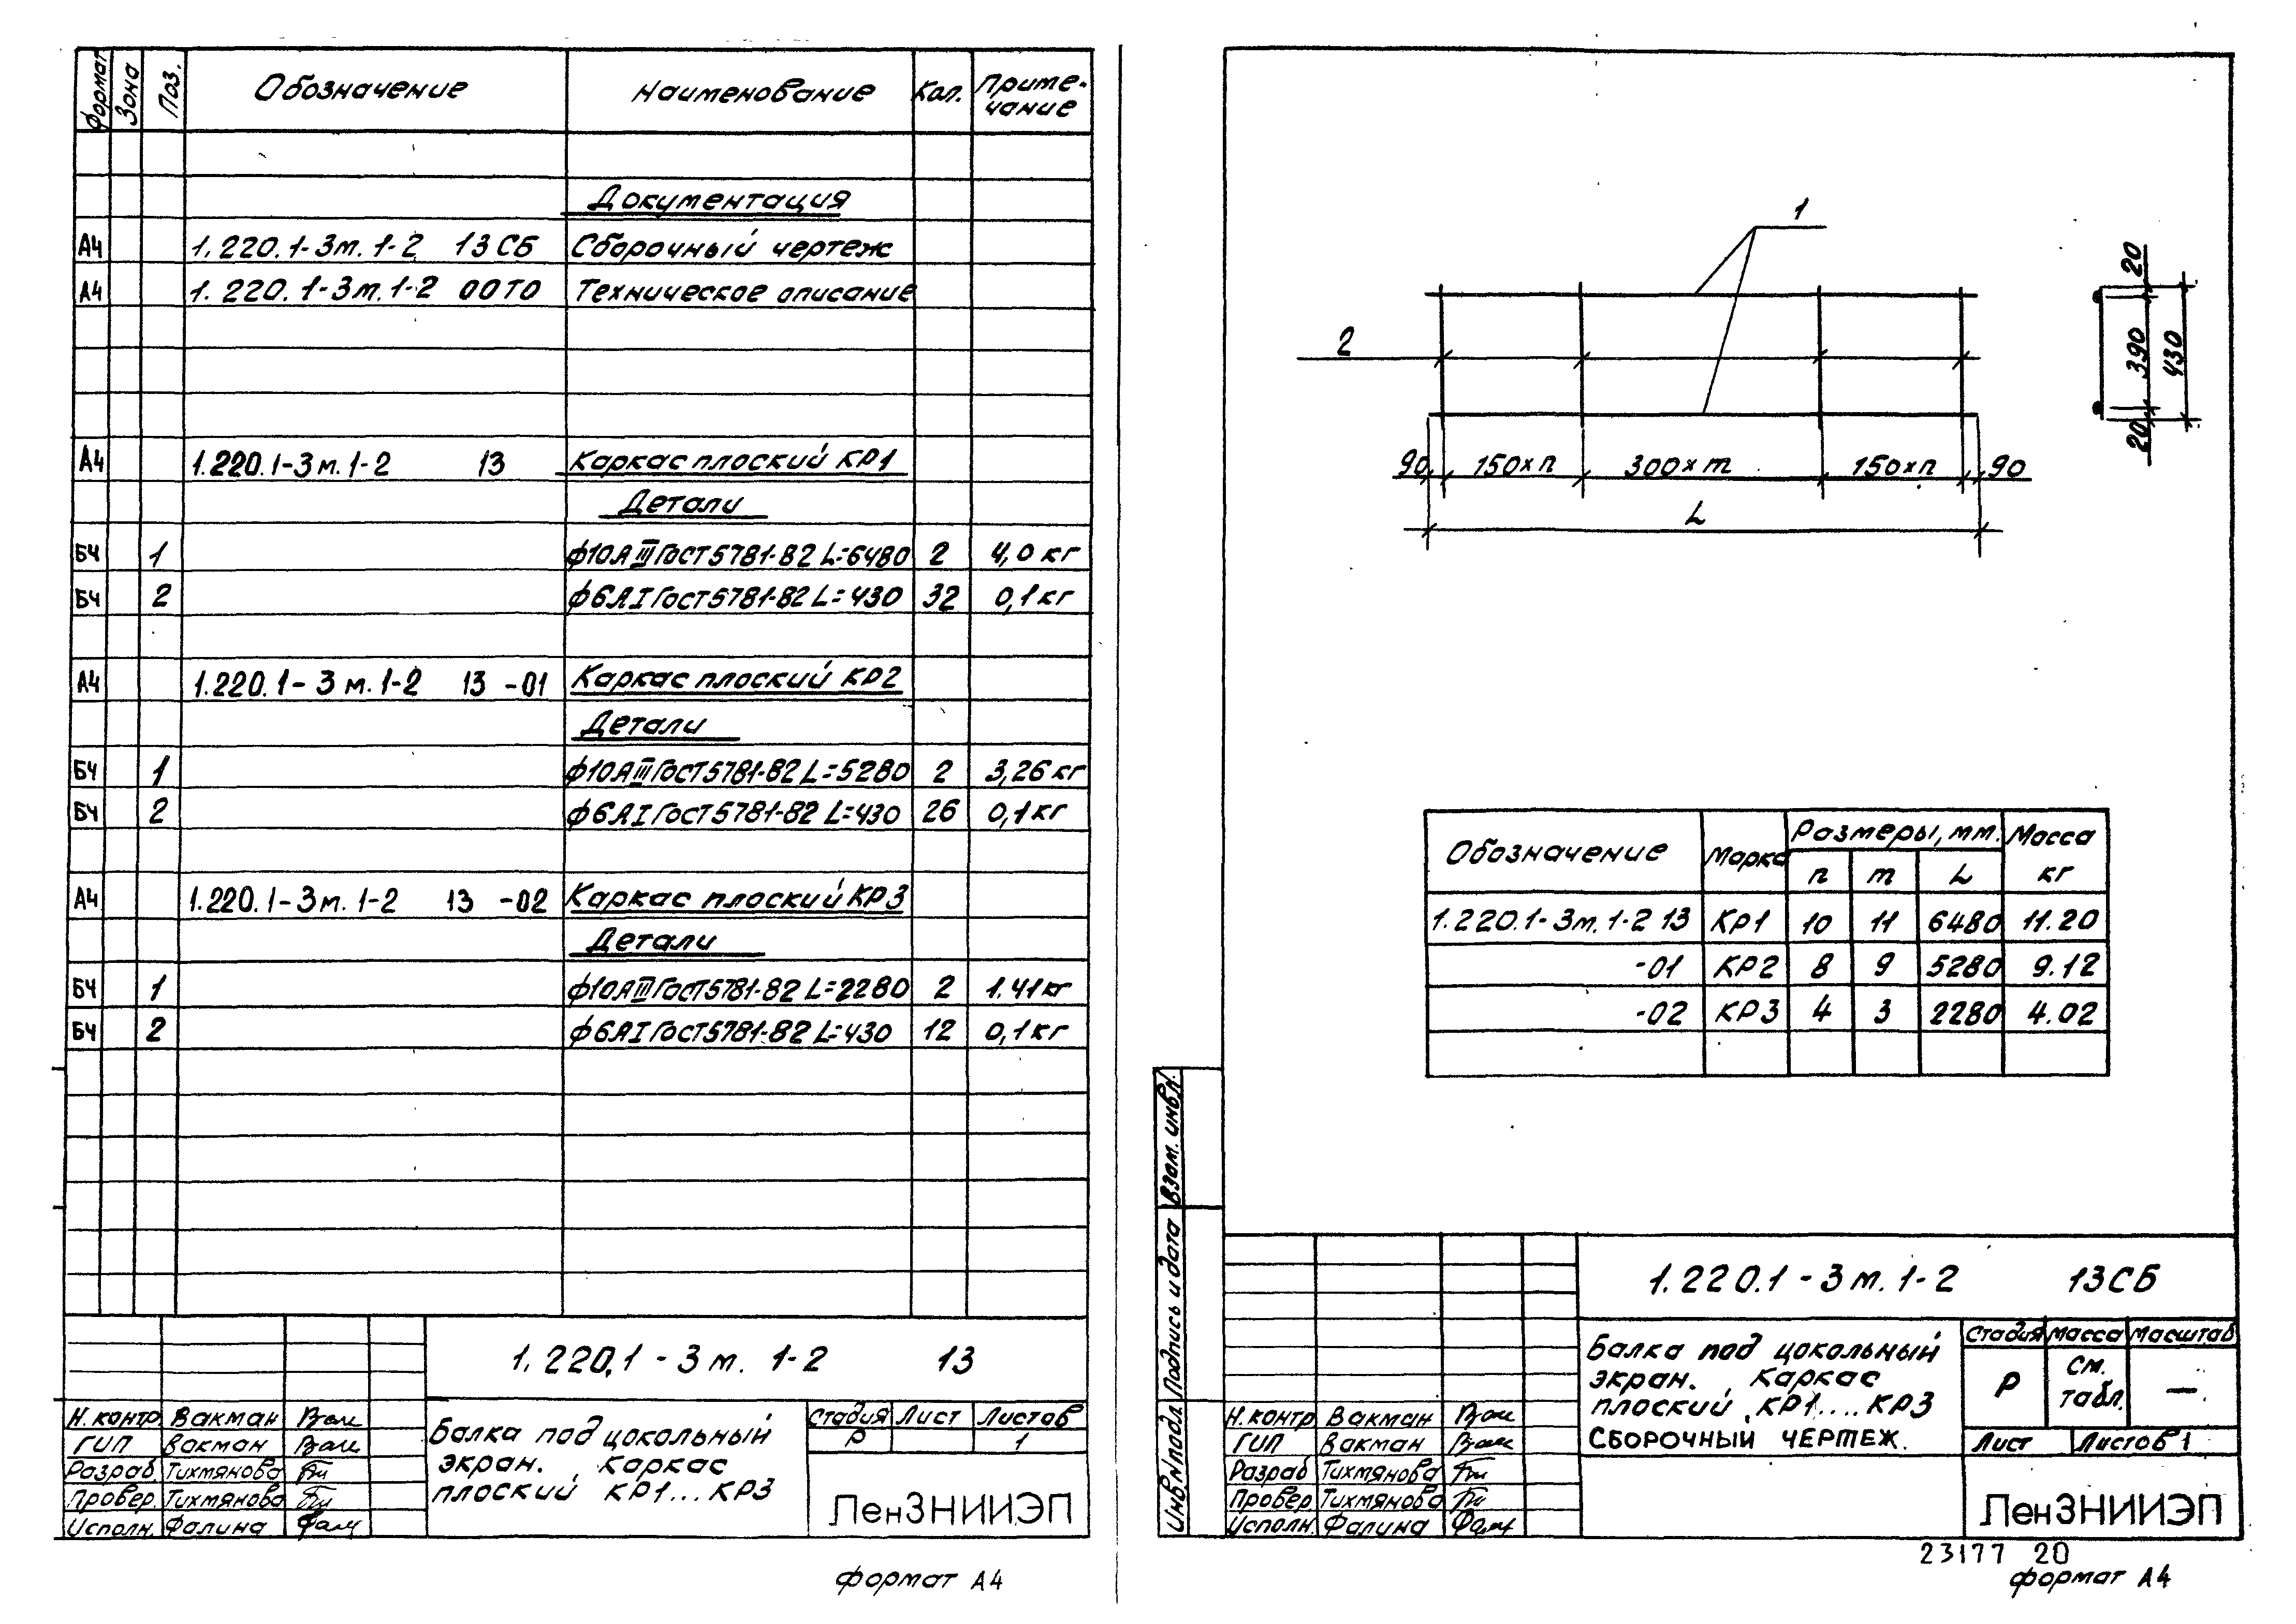 Формат Зона Поз. Обозначение Наименование Кол. Приме-
чание
Документация
А4 1.220.1-3м.1-2 13СБ Сборочный чертеж
А4 1.220.1-3м.1-2 00ТО Техническое описание
А4 1.220.1-3м.1-2 13 Каркас плоский КР1
Детали
БЧ 1 ф10АIII ГОСТ 5781-82 L=6480 2 4,0 кг
БЧ 2 ф6АI ГОСТ 5781-82 L=430 32 0,1 кг
А4 1.220.1-3м.1-2 13 -01 Каркас плоский КР2
Детали
БЧ 1 ф10АIII ГОСТ 5781-82 L=5280 2 3,26 кг
БЧ 2 ф6АI ГОСТ 5781-82 L=430 26 0,1 кг
А4 1.220.1-3м.1-2 13 -02 Каркас плоский КР3
Детали
БЧ 1 ф10АIII ГОСТ 5781-82 L=2280 2 1.41 кг
БЧ 2 ф6АI ГОСТ 5781-82 L=430 12 0,1 кг
1.220.1-3м. 1-2 13
Н.контр Вакман
ГИП Вакман
Разраб. Тихмянова
Провер. Тихмянова
Исполн. Фалина
Балка под цокольный
экран. Каркас
плоский КР1...КР3
Стадия Лист Листов
Р 1
ЛенЗНИИЭП
формат А4
1
2
20
390
430
20
90 150×n 300×m 150×n 90
L
Обозначение Марка Размеры, мм. Масса
кг
n m L
1.220.1-3м.1-2 13 КР1 10 11 6480 11.20
-01 КР2 8 9 5280 9.12
-02 КР3 4 3 2280 4.02
Взам. инв.
Подпись и дата
Инв N подл.
1.220.1-3м.1-2 13СБ
Балка под цокольный
экран. Каркас
плоский КР1....КР3
СБОРОЧНЫЙ ЧЕРТЕЖ.
Стадия Масса Масштаб
Р См.
табл. —
Лист Листов 1
Н.контр Вакман
ГИП Вакман
Разраб Тихмянова
Провер Тихмянова
Исполн. Фалина
ЛенЗНИИЭП
23177 20
формат А4